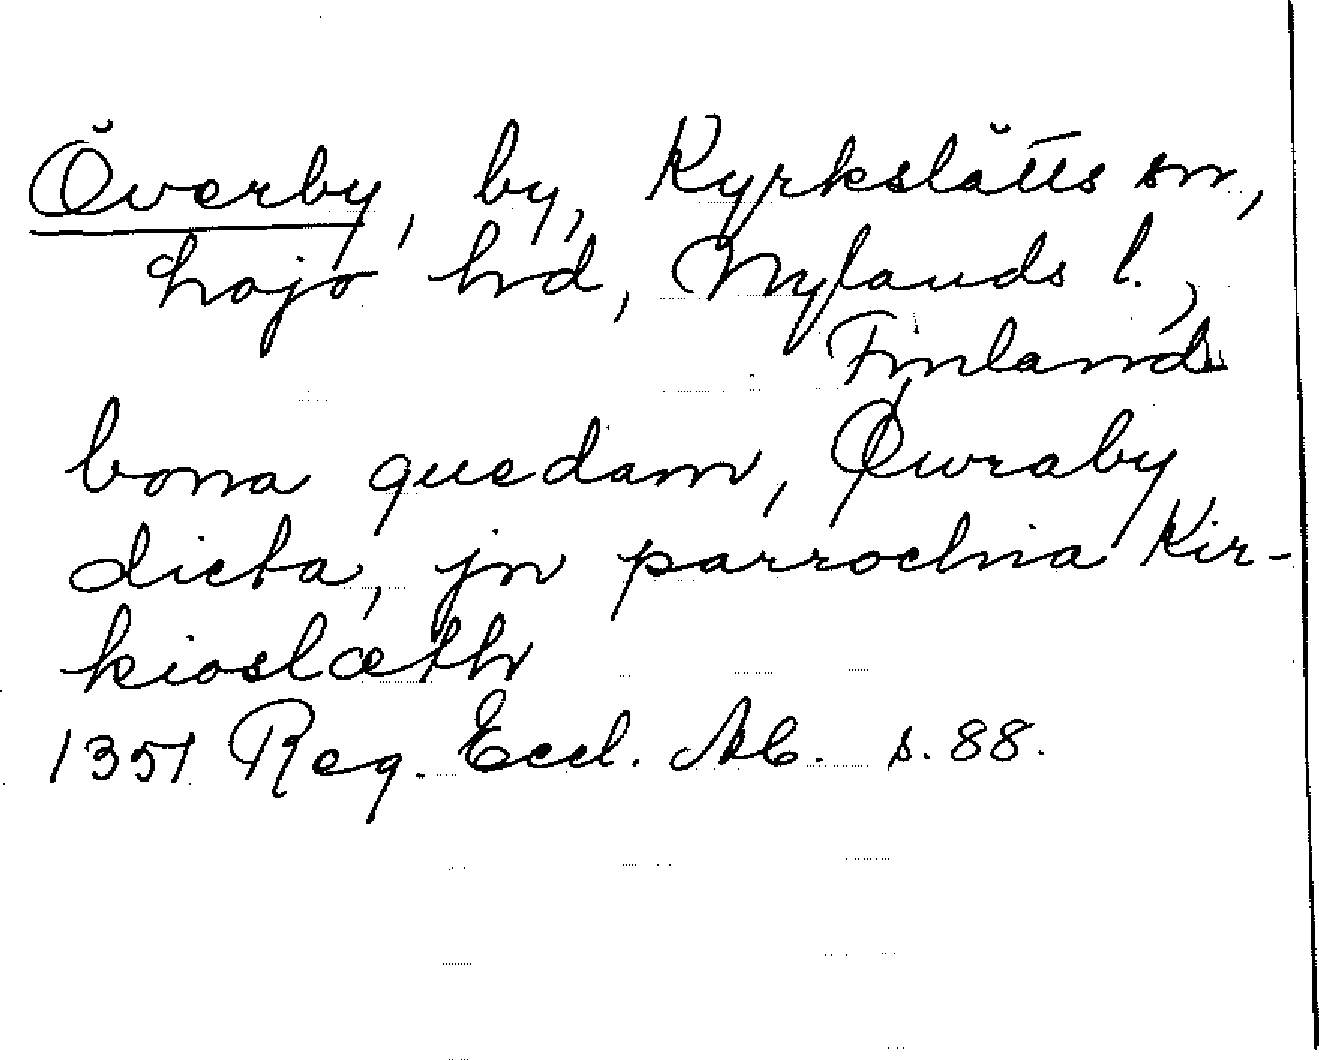 Överby, by, Kyrkslätts sn,
Lojo hd, Nylands l.,
Finland
bona quedam, Øwraby
dicta, jn parrochia Kir-
kioslæth
1351 Reg. Eccl. Ab. s. 88.